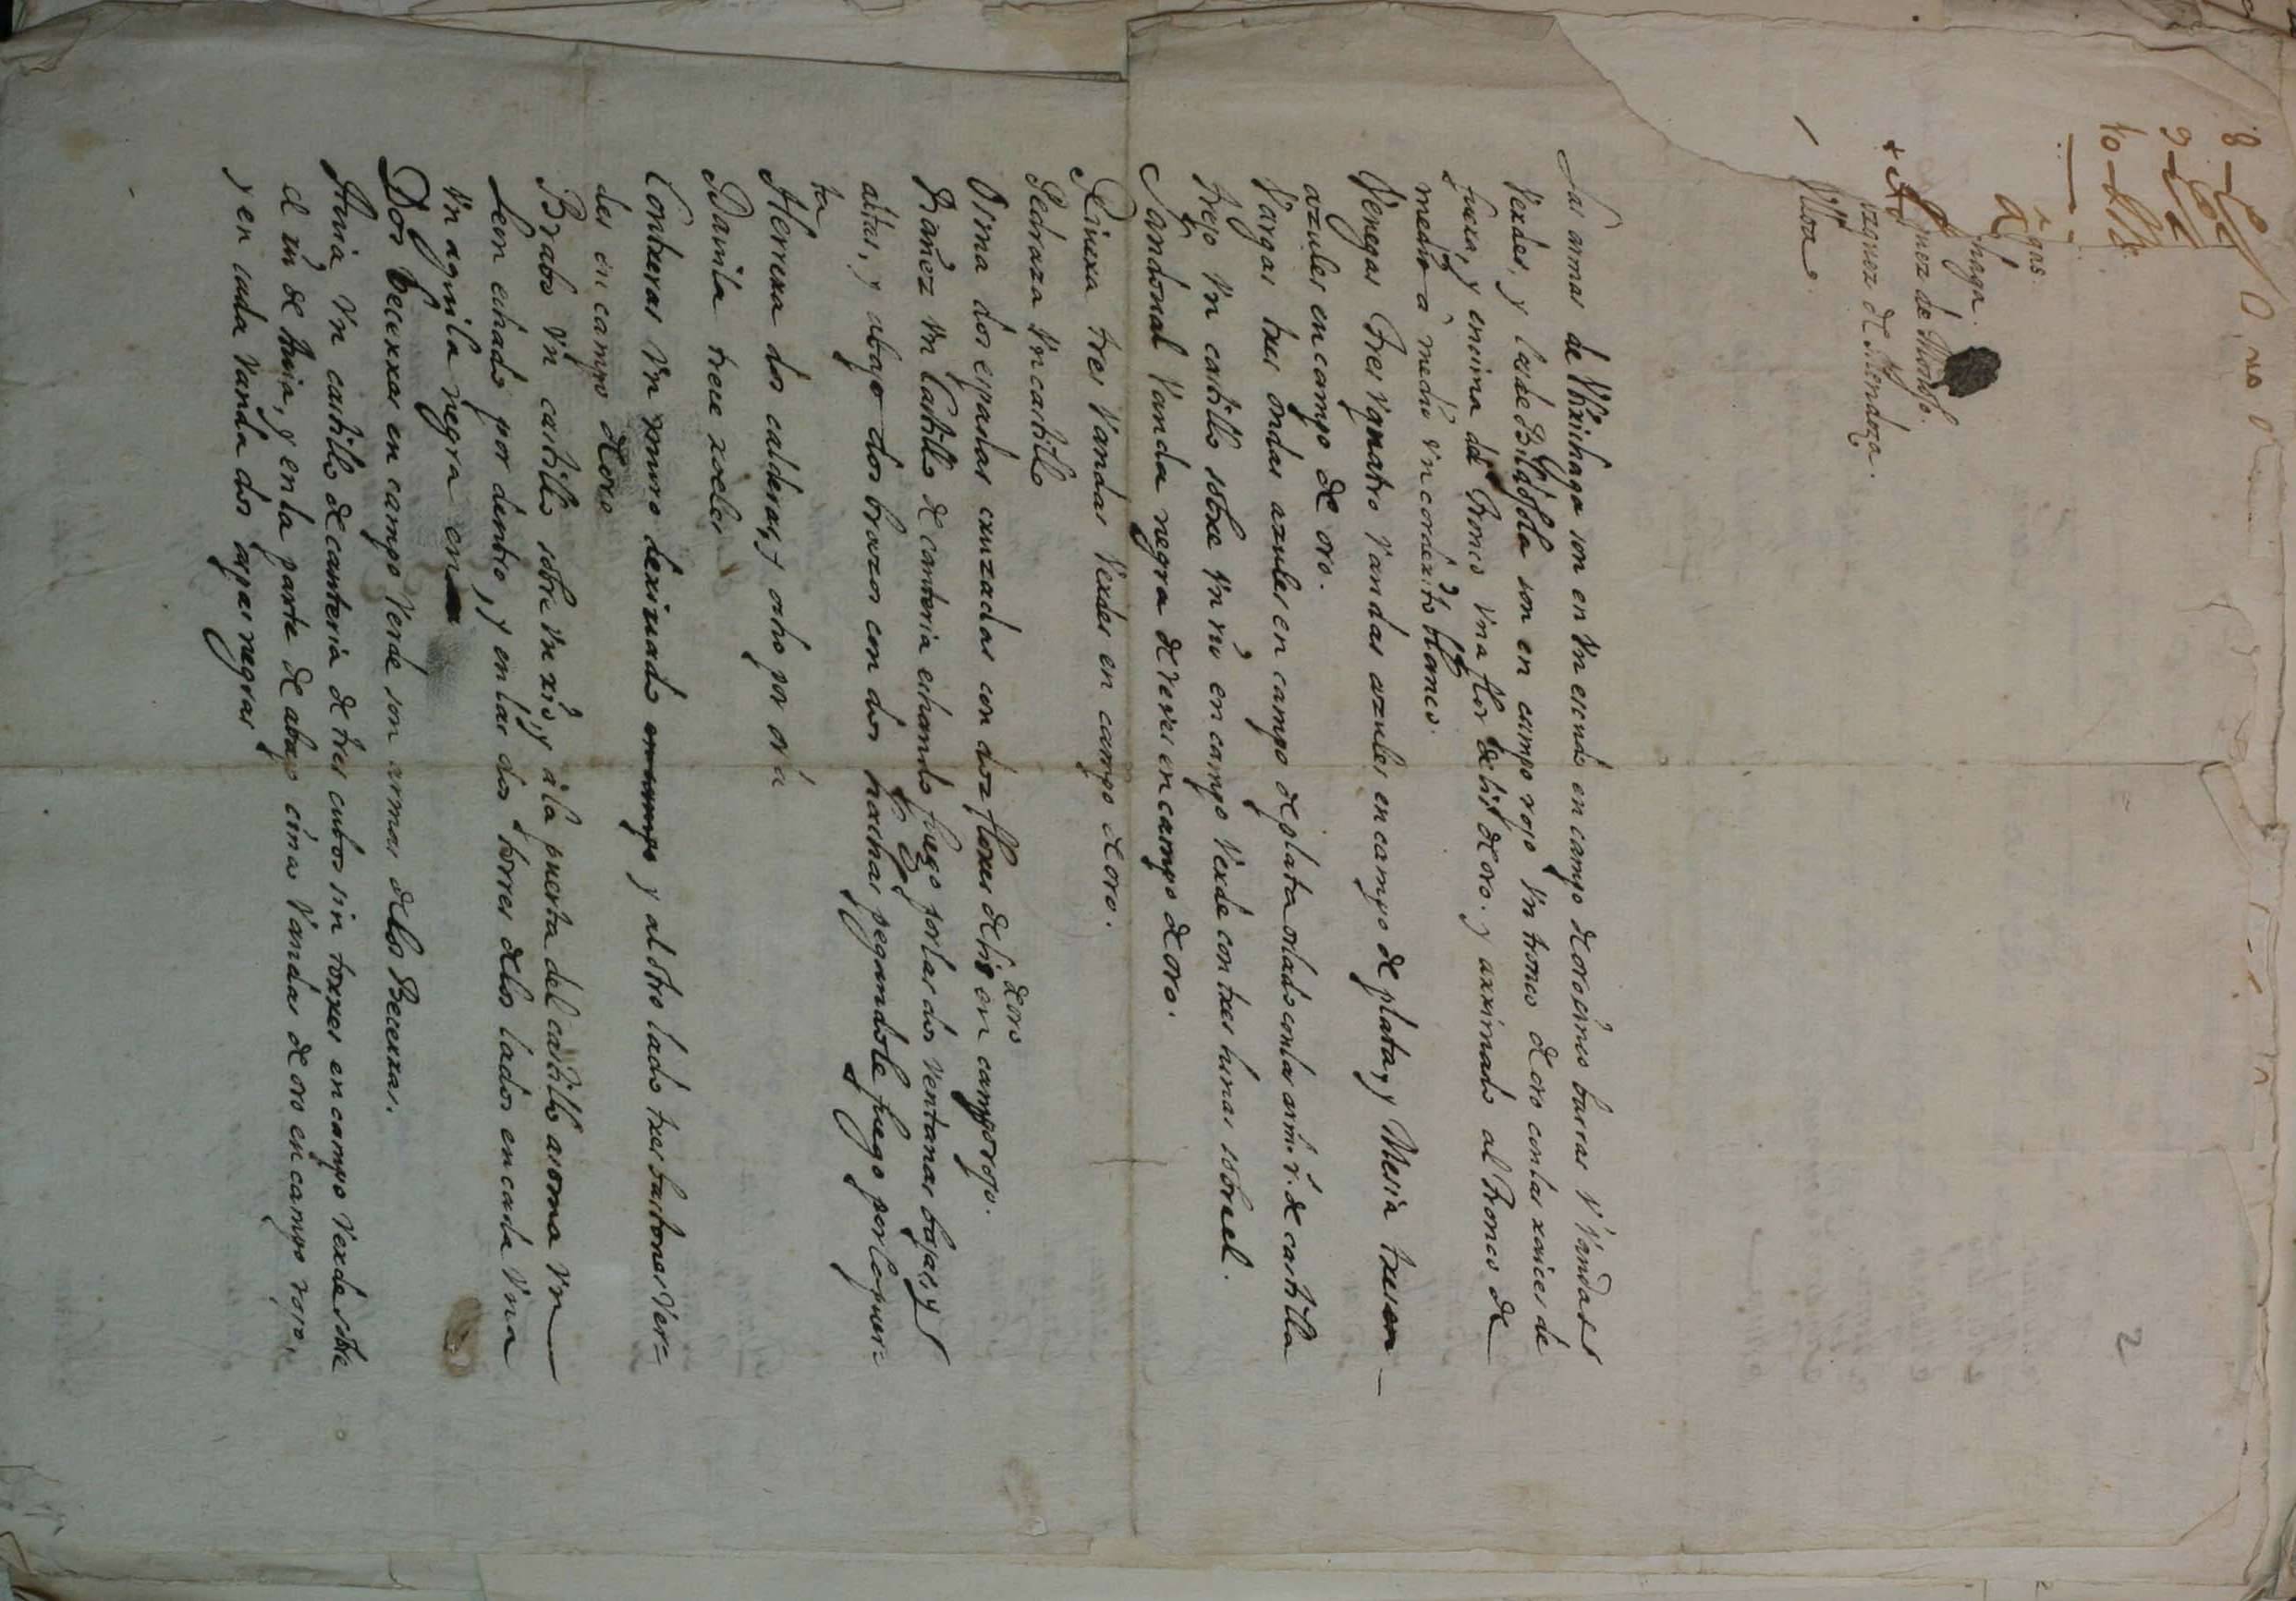 8
9
10
2
gas.
haga.
mez de
zquez de Mendoza.
Mora
Las armas de son en Vn escudo en campo de oro cinco barras V Vandas
Verdes, y las de son en campo rojo Vn tronco de oro con las raices de
fuera, y encima del tronco Vna flor de lis de oro. y arrimado al tronco de
medio a medio Vn corderito blanco.
Venegas tres Vandas azules en campo de plata, y Mesia tres
azules en campo de oro.
Vargas tres ondas azules en campo de plata orlado con las arm.s de castilla
Trejo Vn castillo sobre Vn rio en campo Verde con tres lunas sobre el.
Sandoual Vanda negra de reves en campo de oro.
Riuera tres Vandas Verdes en campo de oro.
Pedraza Vn castillo
de oro
Osma dos espadas cruzadas con dos flores de lis en campo rojo.
Vn Castillo de canteria echando fuego por las dos Ventanas bajas, y
altas, y abajo dos brazos con dos hachas pegandole fuego por la puer=
ta
Herrera dos calderas, y ocho por orla
Dauila trece roeles
Contreras Vn muro y al otro lado tres bastones Ver=
des en campo de oro
Brabo Vn castillo sobre Vn rio, y a la puerta del castillo asoma Vn
Leon echado por dentro, y en las dos torres de los lados en cada Vna
Vn aguila negra en
Dos Becerras en campo Verde son armas de los Becerras.
Vn castillo de canteria de tres cubos sin torres en campo Verde sobre
el rio de y en la parte de abajo cinco Vandas de oro en campo rojo,
y en cada Vanda dos aspas negras